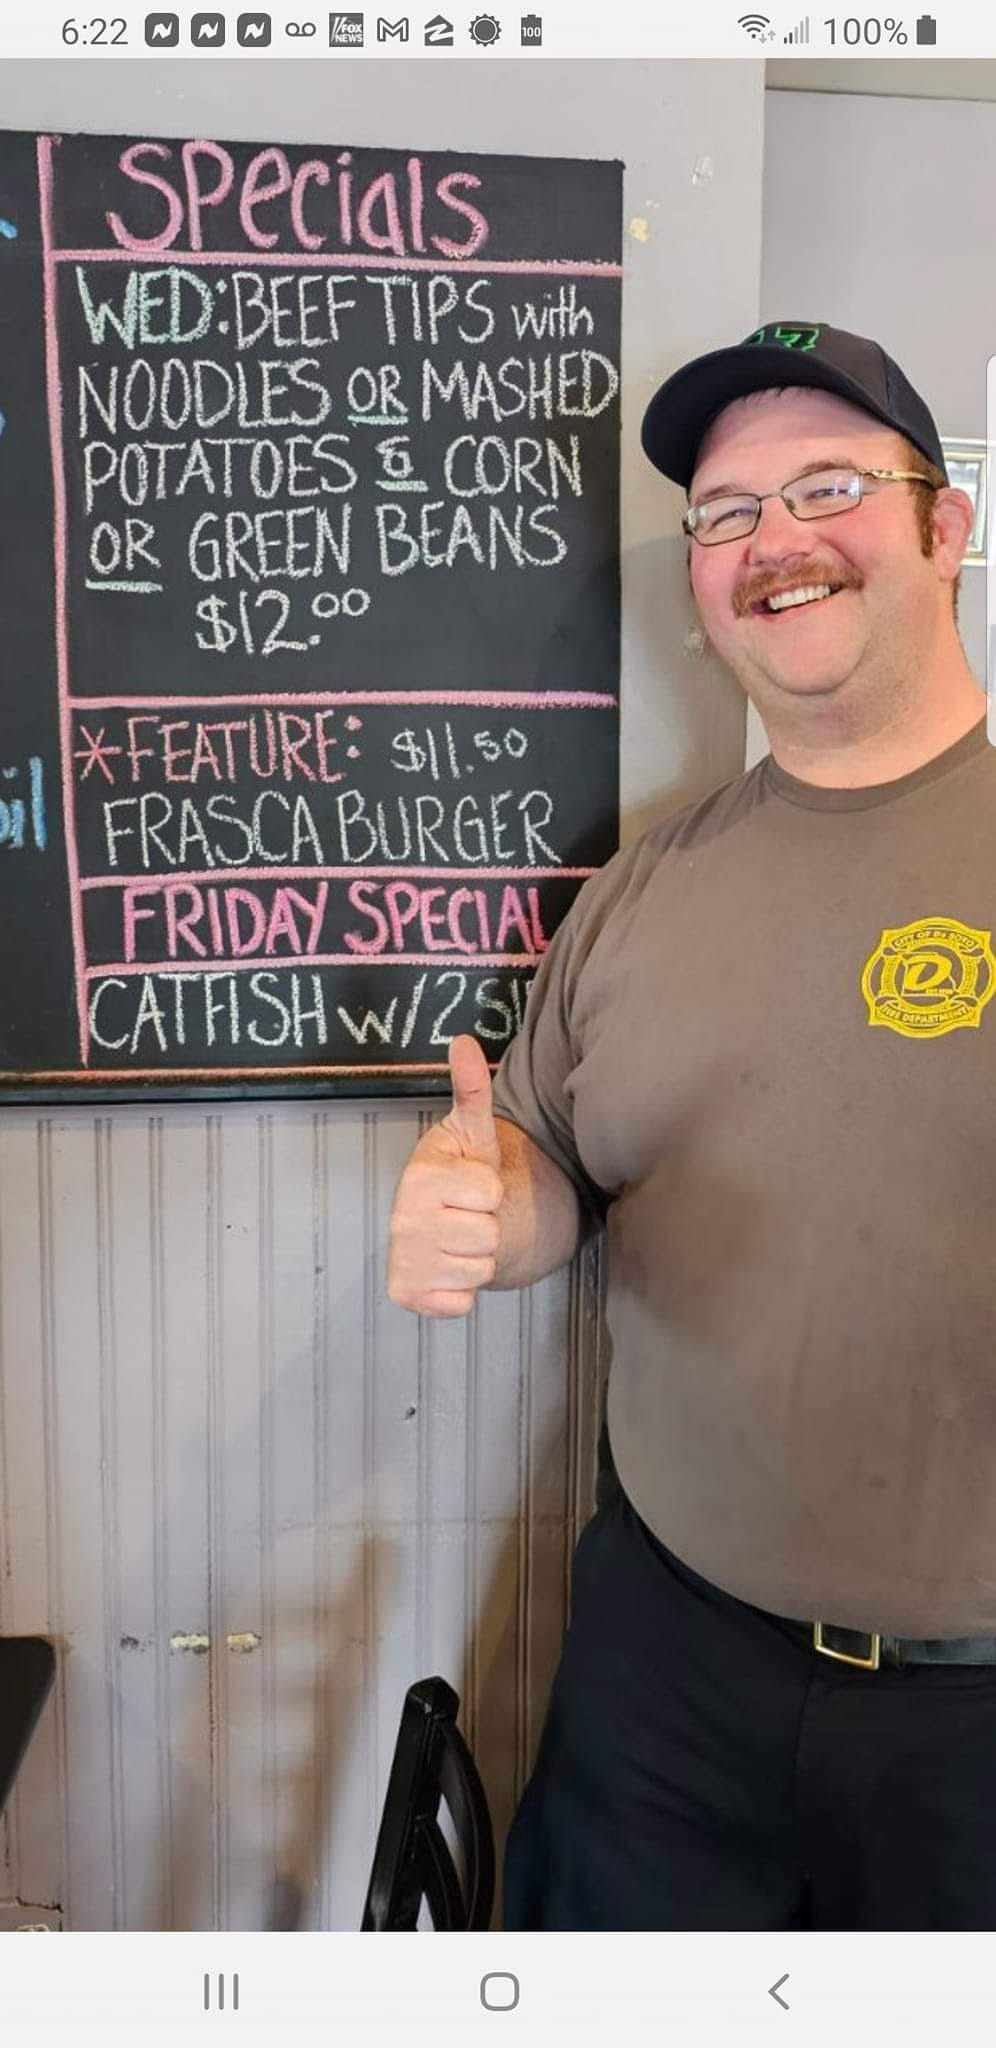 6:22
FOX
NEWS
100
100%
Specials
WED: BEEF TIPS with
NOODLES OR MASHED
POTATOES & CORN
OR GREEN BEANS
$12.00
*FEATURE: $11.50
FRASCA BURGER
FRIDAY SPECIAL
CATFISH w/2 SI
oil
17
CITY OF De SOTO
D
FIRE DEPARTMENT